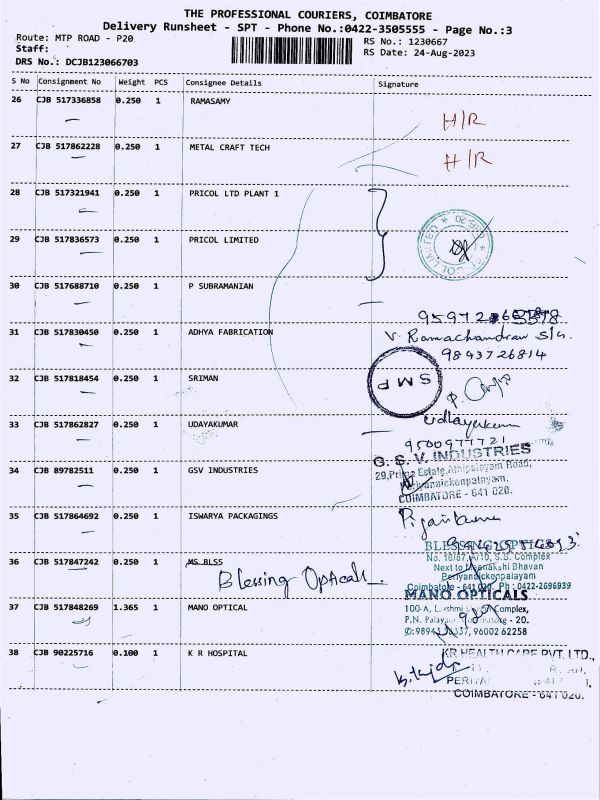 THE PROFESSIONAL COURIERS, COIMBATORE
Delivery Runsheet - SPT - Phone No.:0422-3505555 - Page No.:3
Route: MTP ROAD - P20
RS No.: 1230667
Staff:
RS Date: 24-Aug-2023
DRS No.: DCJB123066703
S No Consignment No Weight PCS Consignee Details Signature
26 CJB 517336858 0.250 1 RAMASAMY
H/R
27 CJB 517862228 0.250 1 METAL CRAFT TECH
H/R
28 CJB 517321941 0.250 1 PRICOL LTD PLANT 1
29 CJB 517836573 0.250 1 PRICOL LIMITED
30 CJB 517688710 0.250 1 P SUBRAMANIAN
31 CJB 517830450 0.250 1 ADHYA FABRICATION
V. Ramachandran
9843726814
32 CJB 517818454 0.250 1 SRIMAN
SMP
33 CJB 517862827 0.250 1 UDAYAKUMAR
Udhayakumar
9500977721
34 CJB 89782511 0.250 1 GSV INDUSTRIES
G. S. V. INDUSTRIES
29, Estate, Athipalayam Road,
Periyanaickenpalayam,
COIMBATORE - 641 020.
35 CJB 517864692 0.250 1 ISWARYA PACKAGINGS
36 CJB 517847242 0.250 1 MS BLSS
Blessing Opticals
BLESSING OPTICALS
No. 16/87, A/10, S.S. Complex
Next to Meenakshi Bhavan
Periyanaickenpalayam
Coimbatore - 641 020, Ph : 0422-2696939
37 CJB 517848269 1.365 1 MANO OPTICAL
MANO OPTICALS
100-A, Complex,
P.N. Palayam, - 20.
96002 62258
38 CJB 90225716 0.100 1 K R HOSPITAL
KR HEALTH CARE PVT. LTD.,
COIMBATORE - 641 020.